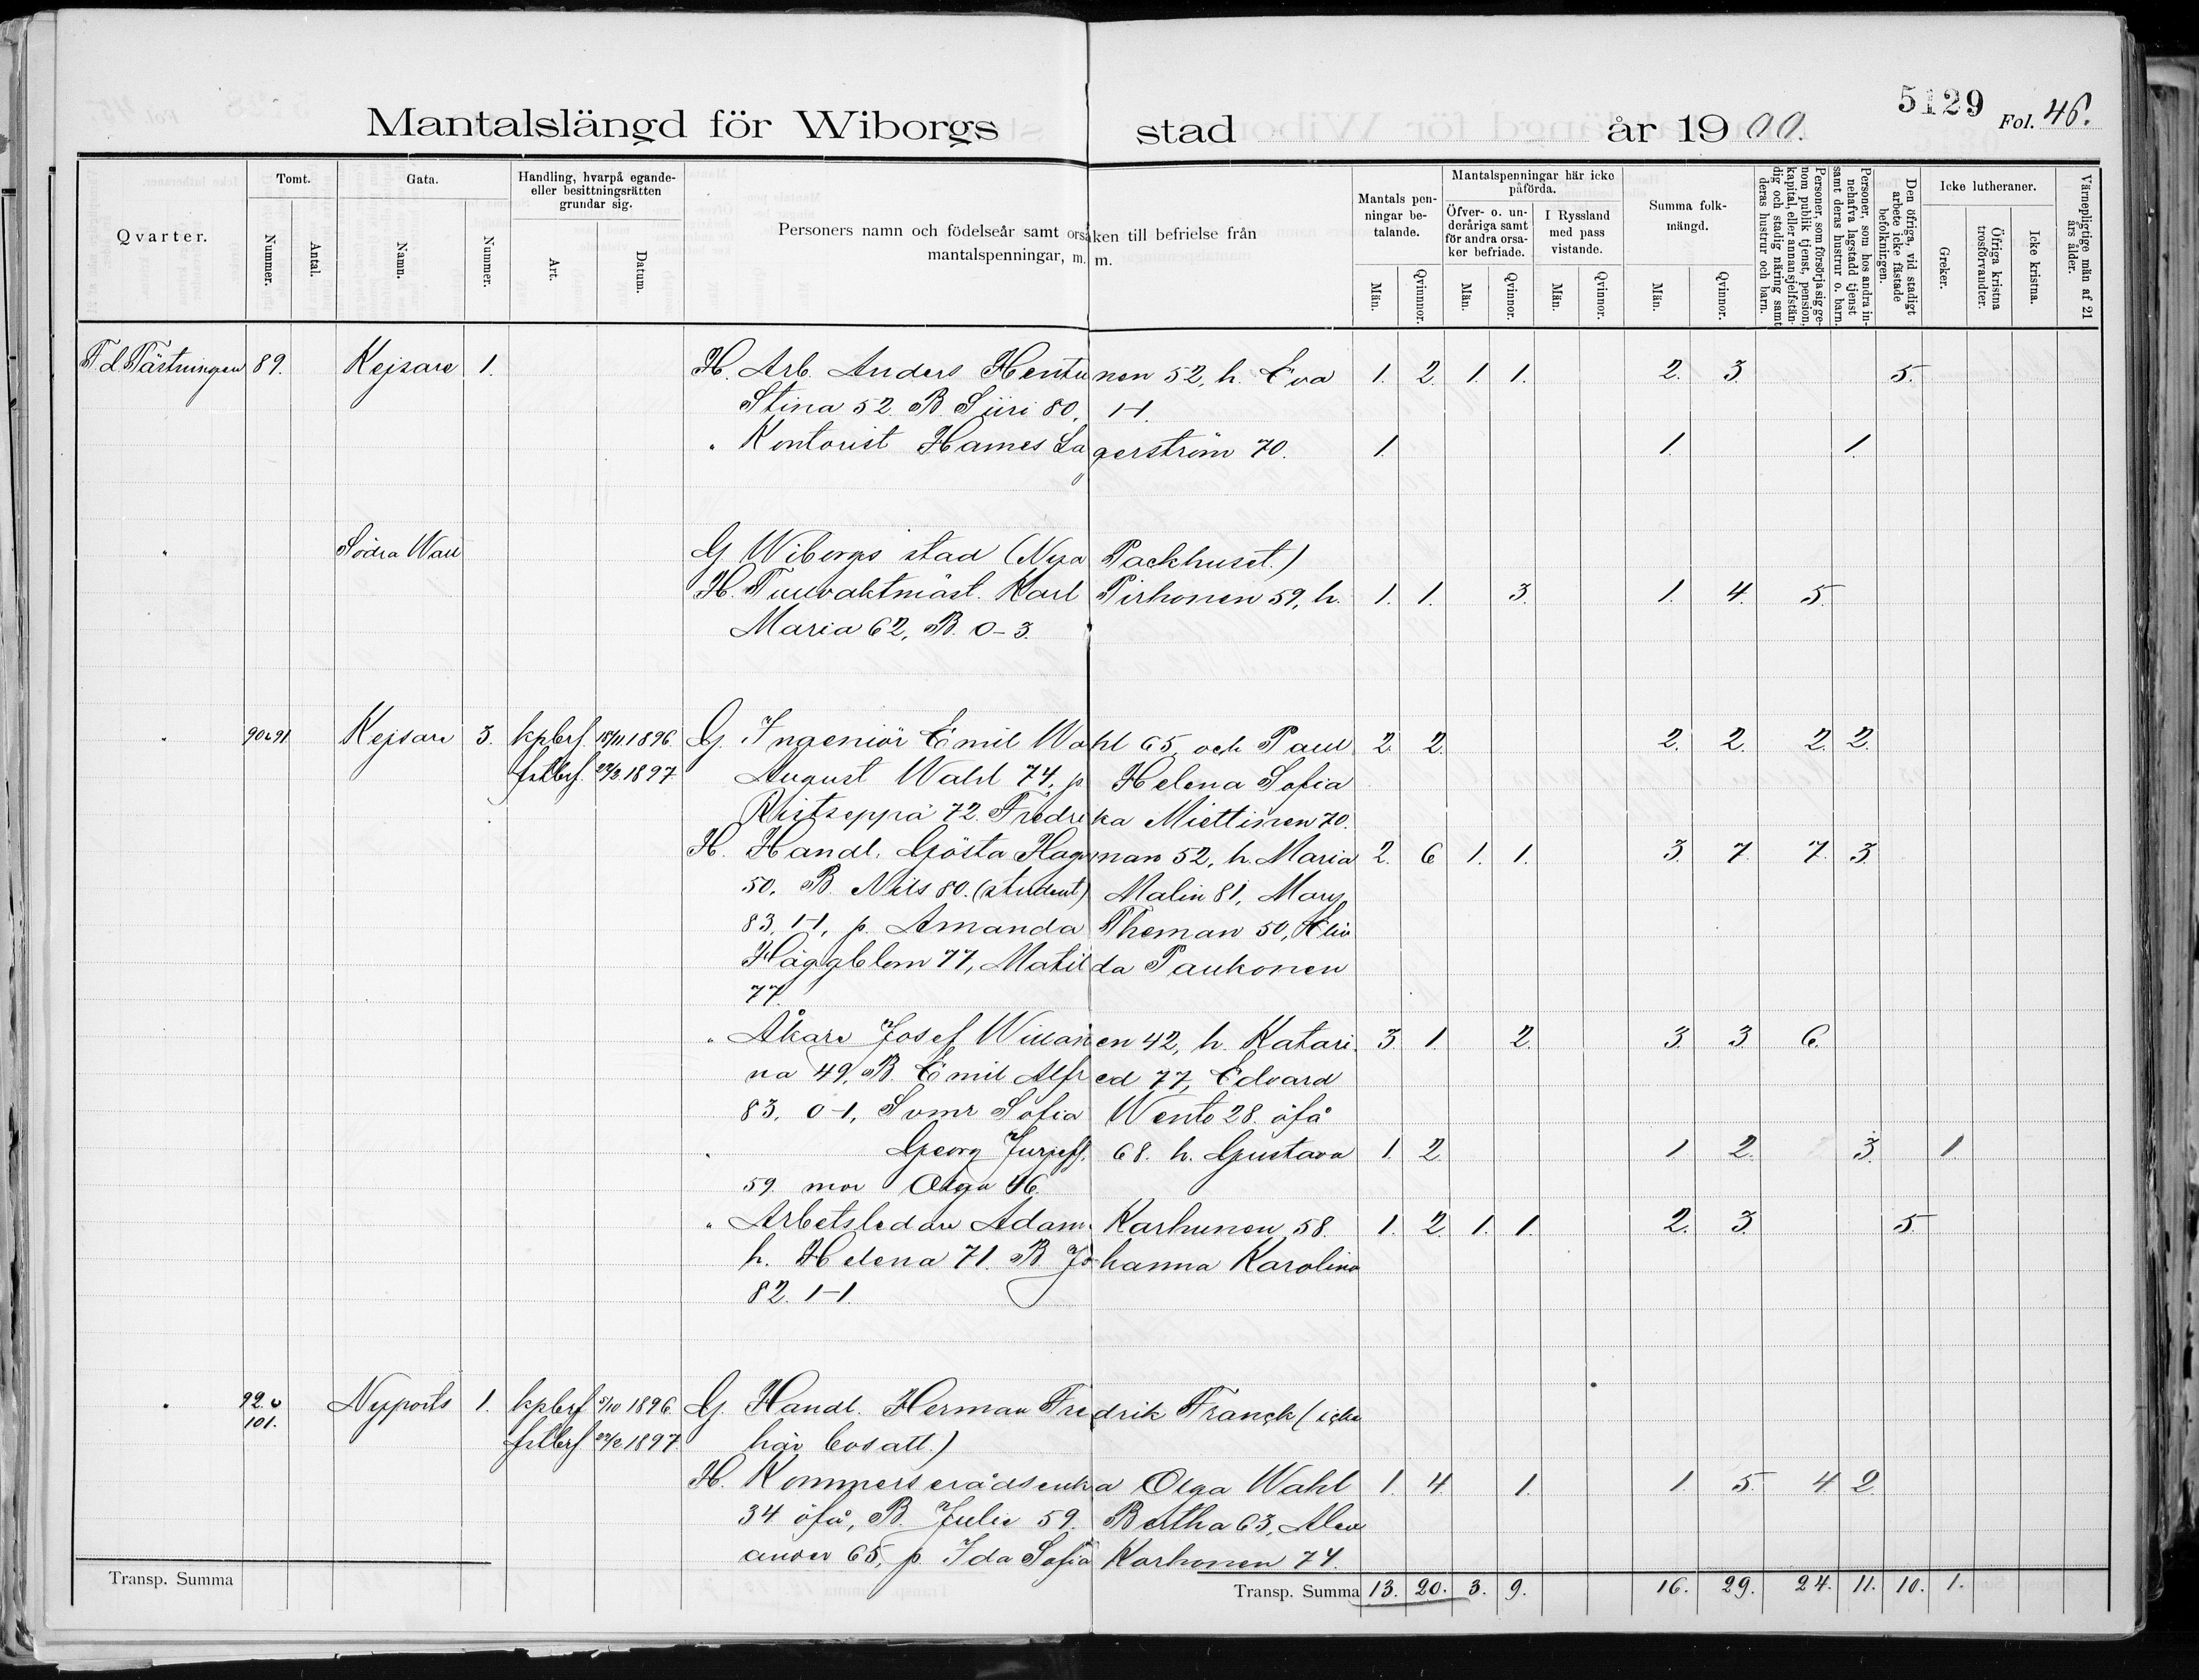 5129 Fol. 46.
Mantalslängd för Wiborgs stad år 1900.
Qvarter.
Tomt.
Nummer.
Antal.
Gata.
Namn.
Nummer.
Handling, hvarpå egande-
eller besittningsrätten
grundar sig.
Art.
Datum.
Personers namn och födelseår samt orsaken till befrielse från
mantalspenningar, m. m.
Mantals pen-
ningar be-
talande.
Män.
Qvinnor.
Mantalspenningar här icke
påförda.
Öfver- o. un-
deråriga samt
för andra orsa-
ker befriade.
Män.
Qvinnor.
I Ryssland
med pass
vistande.
Män.
Qvinnor.
Summa folk-
mängd.
Män.
Qvinnor.
Personer, som försörja sig ge-
nom publik tjenst, pension,
kapital, eller annan sjelfstän-
dig och stadig näring samt
deras hustrur och barn.
Personer, som hos andra in-
nehafva lagstadd tjenst
samt deras hustrur o. barn.
Den öfriga, vid stadigt
arbete icke fästade
befolkningen.
Icke lutheraner.
Greker.
Öfriga kristna
trosförvandter.
Icke kristna.
Värnepligtige män af 21
års ålder.
F.d. Fästningen 89. Kejsare 1. H. Arb. Anders Hentunen 52, h. Eva 1. 2. 1. 1. 2. 3. 5.
Stina 52. B. Siiri 80, 1-1.
" Kontorist Hames Lagerström 70. 1. 1. 1.
" Södra Wall G Wiborgs stad (Nya Packhuset.)
H. Tullvaktmäst. Karl Pirhonen 59, h. 1. 1. 3. 1. 4. 5.
Maria 62, B. 0-3.
" 90 o 91 Kejsare 3. kpbrf. 18/11 1896. G. Ingeniör Emil Wahl 65, och Paul 2. 2. 2. 2. 2. 2.
fstbrf. 22/2 1897 August Wahl 74, p. Helena Sofia
Ristseppä 72. Fredrika Miettinen 70.
H. Handl. Gösta Hagman 52, h. Maria 2. 6 1. 1. 3. 7. 7. 3.
50. B. Nils 80. (student) Malin 81, Mary
83, 1-1, p. Amanda Theman 50,
Häggblom 77, Matilda Paukonen
77.
" Åkare Josef Willanen 42, h. Katari- 3. 1. 2. 3. 3. 6.
na 49, B. Emil Alfred 77, Edvard
83, 0-1, Svmr Sofia Wento 28. öfå
" Georg Jurjeff. 68. h. Gustava 1. 2. 1 2. 3. 1.
59. mor Olga 46.
" Arbetsledare Adam Karhunen 58. 1. 2. 1. 1. 2. 3. 5.
h. Helena 71. B Johanna Karolina
82. 1-1.
" 92 o 101. Nyports 1. kpbrf 5/10 1896. G. Handl. Herman Fredrik Franck (icke
fstbrf 22/2 1897. här bosatt.)
H. Kommerserådsenka Olga Wahl 1. 4. 1. 1. 5. 4. 2.
34 öfå, B. Julie 59. Bertha 63, Alex
ander 65, p. Ida Sofia Korhonen 74.
Transp. Summa Transp. Summa 13. 20. 3. 9. 16. 29. 24. 11. 10. 1.